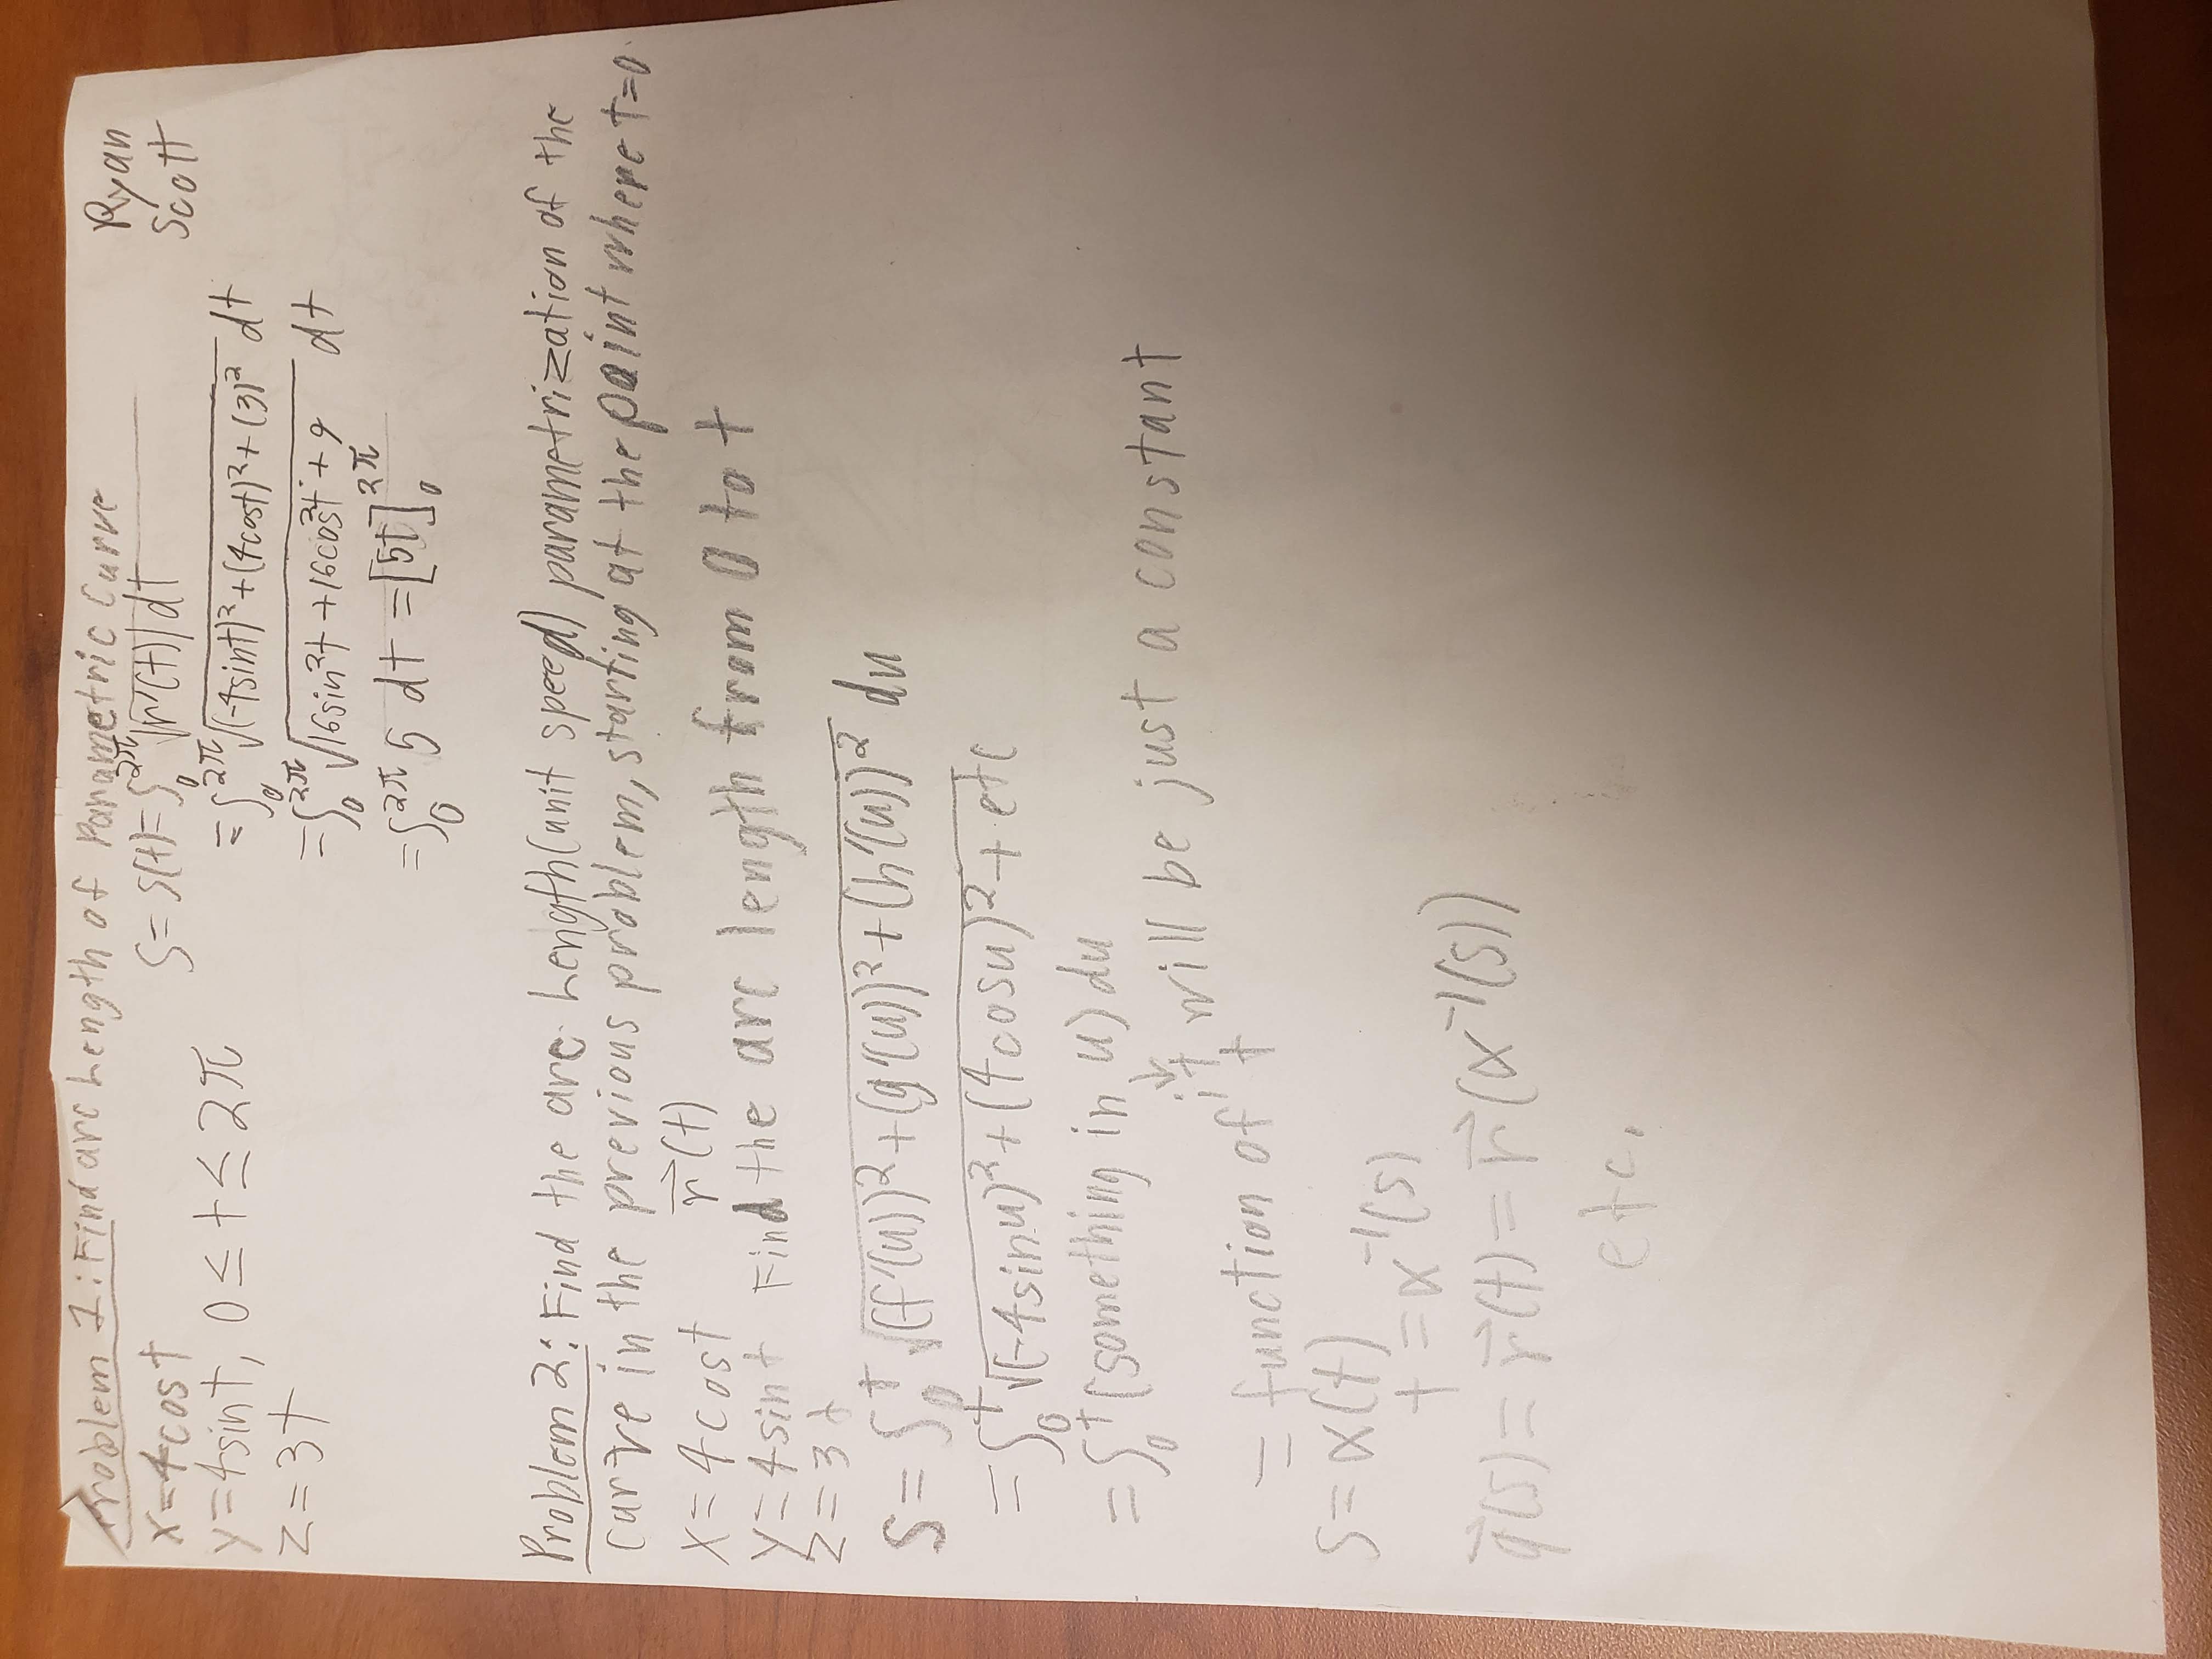 Problem 1: Find arc Length of Parametric Curve
Ryan
Scott
x=4cost
y=4sint, 0≤t≤2π
z=3t
S=s(t)=∫₀^2π √|r'(t)| dt
=∫₀^2π √((-4sint)²+(4cost)²+(3)²) dt
=∫₀^2π √(16sin²t+16cos²t+9) dt
=∫₀^2π 5 dt =[5t]₀^2π
Problem 2: Find the arc Length(unit speed) parametrization of the
curve in the previous problem, starting at the point where t=0.
x=4cost r⃗(t)
y=4sint Find the arc length from 0 to t
z=3t
S=∫₀^t √((f'(u))²+(g'(u))²+(h'(u))²) du
=∫₀^t √((-4sinu)²+(4cosu)²+etc
=∫₀^t (something in u) du
↓
it will be just a constant
= function of t
S=α(t)
t=α⁻¹(s)
q⃗(s)=r⃗(t)=r⃗(α⁻¹(s))
etc.